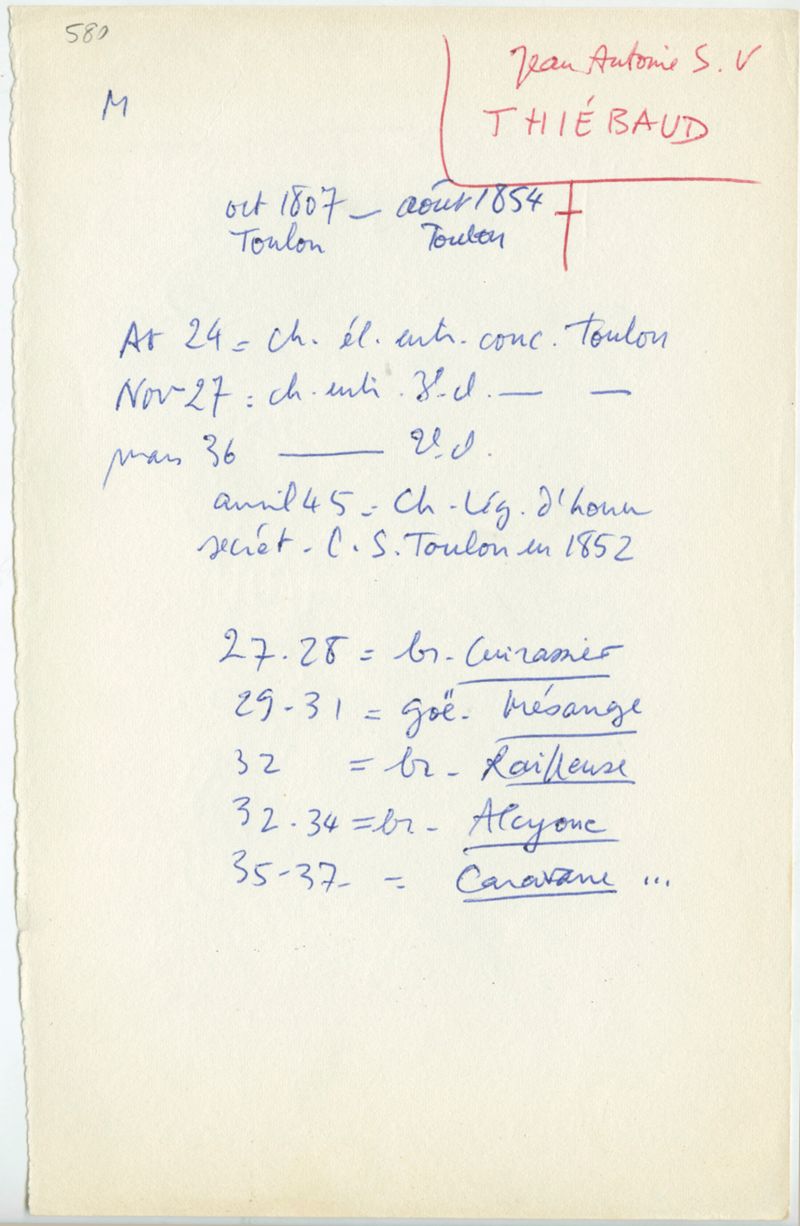 580
Jean Antoine S. V
THIÉBAUD
M
oct 1807 — août 1854
Toulon Toulon
At 24 = ch. él. entr. conc. Toulon
Nov 27 = ch. entr. 3e cl. — —
mars 36 — 2e cl.
avril 45 = Ch. Lég. d'honn
secrét. C. S. Toulon en 1852
27.28 = br. Cuirassier
29-31 = goë. Mésange
32 = br. Railleuse
32.34 = br. Alcyone
35-37 - = Caravane ...